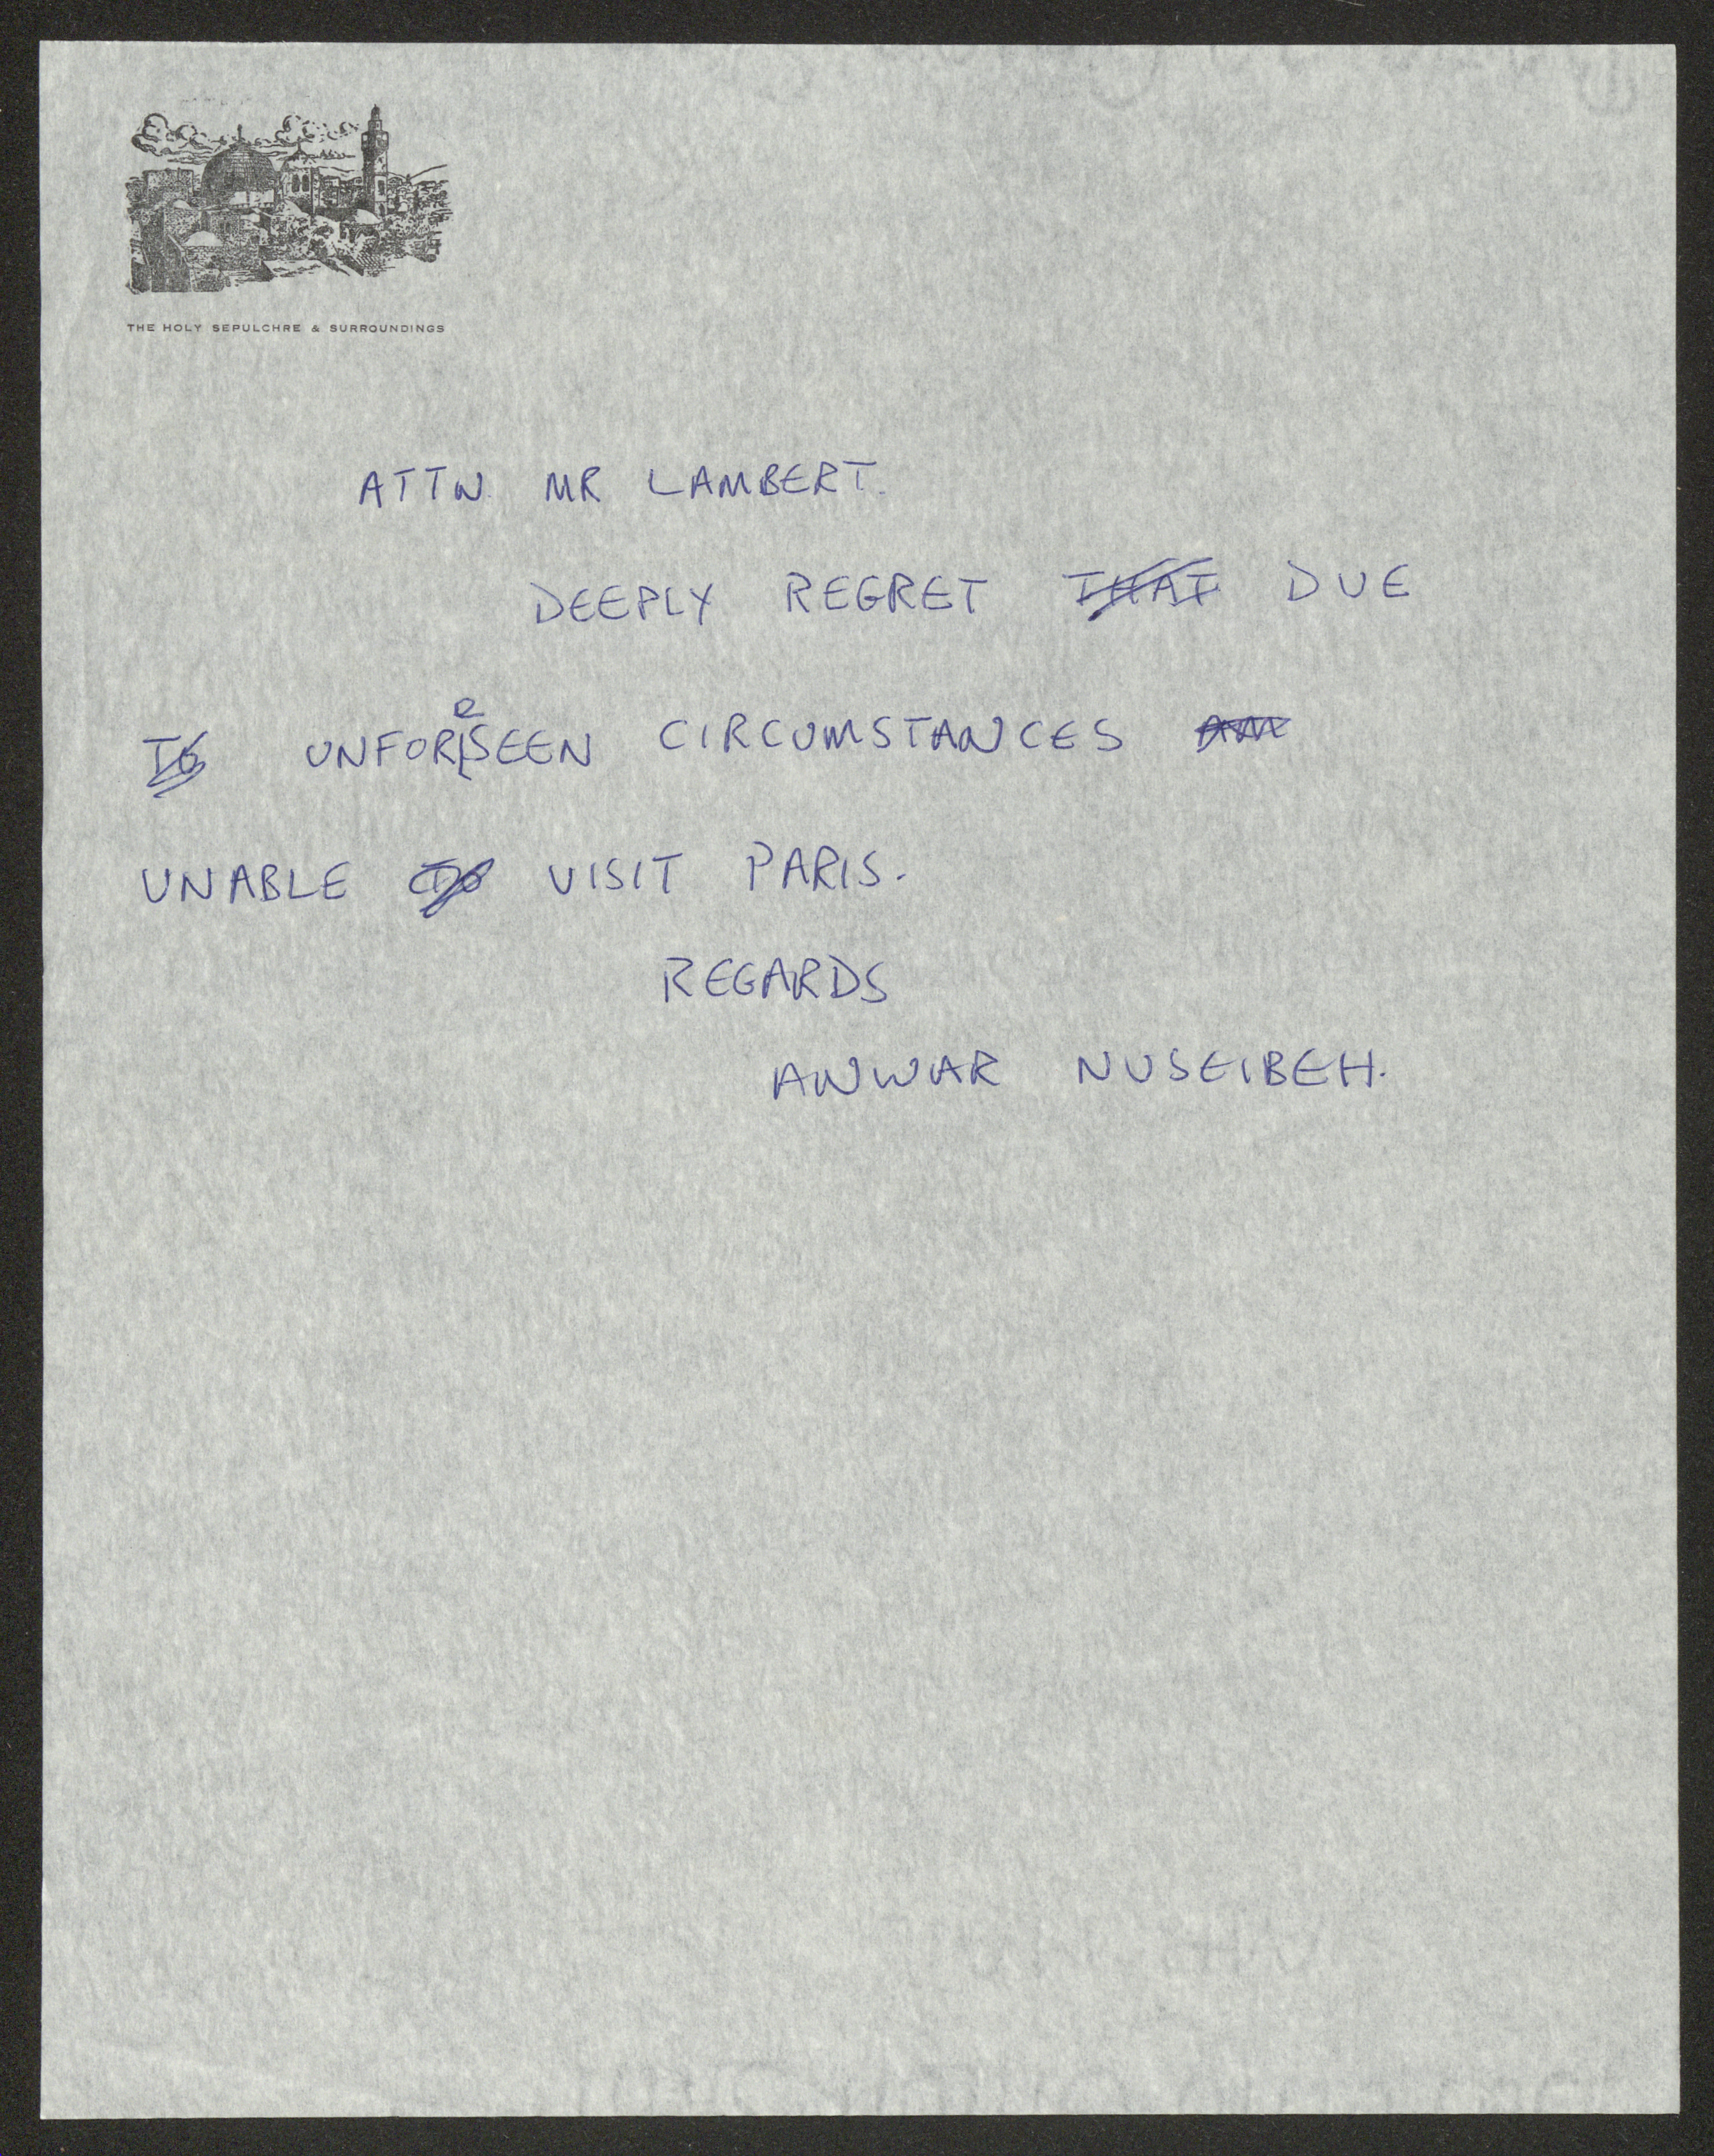 THE HOLY SEPULCHRE & SURROUNDINGS
ATTN. MR LAMBERT.
DEEPLY REGRET THAT DUE
TO UNFORESEEN CIRCUMSTANCES AM
UNABLE TO VISIT PARIS.
REGARDS
ANWAR NUSEIBEH.